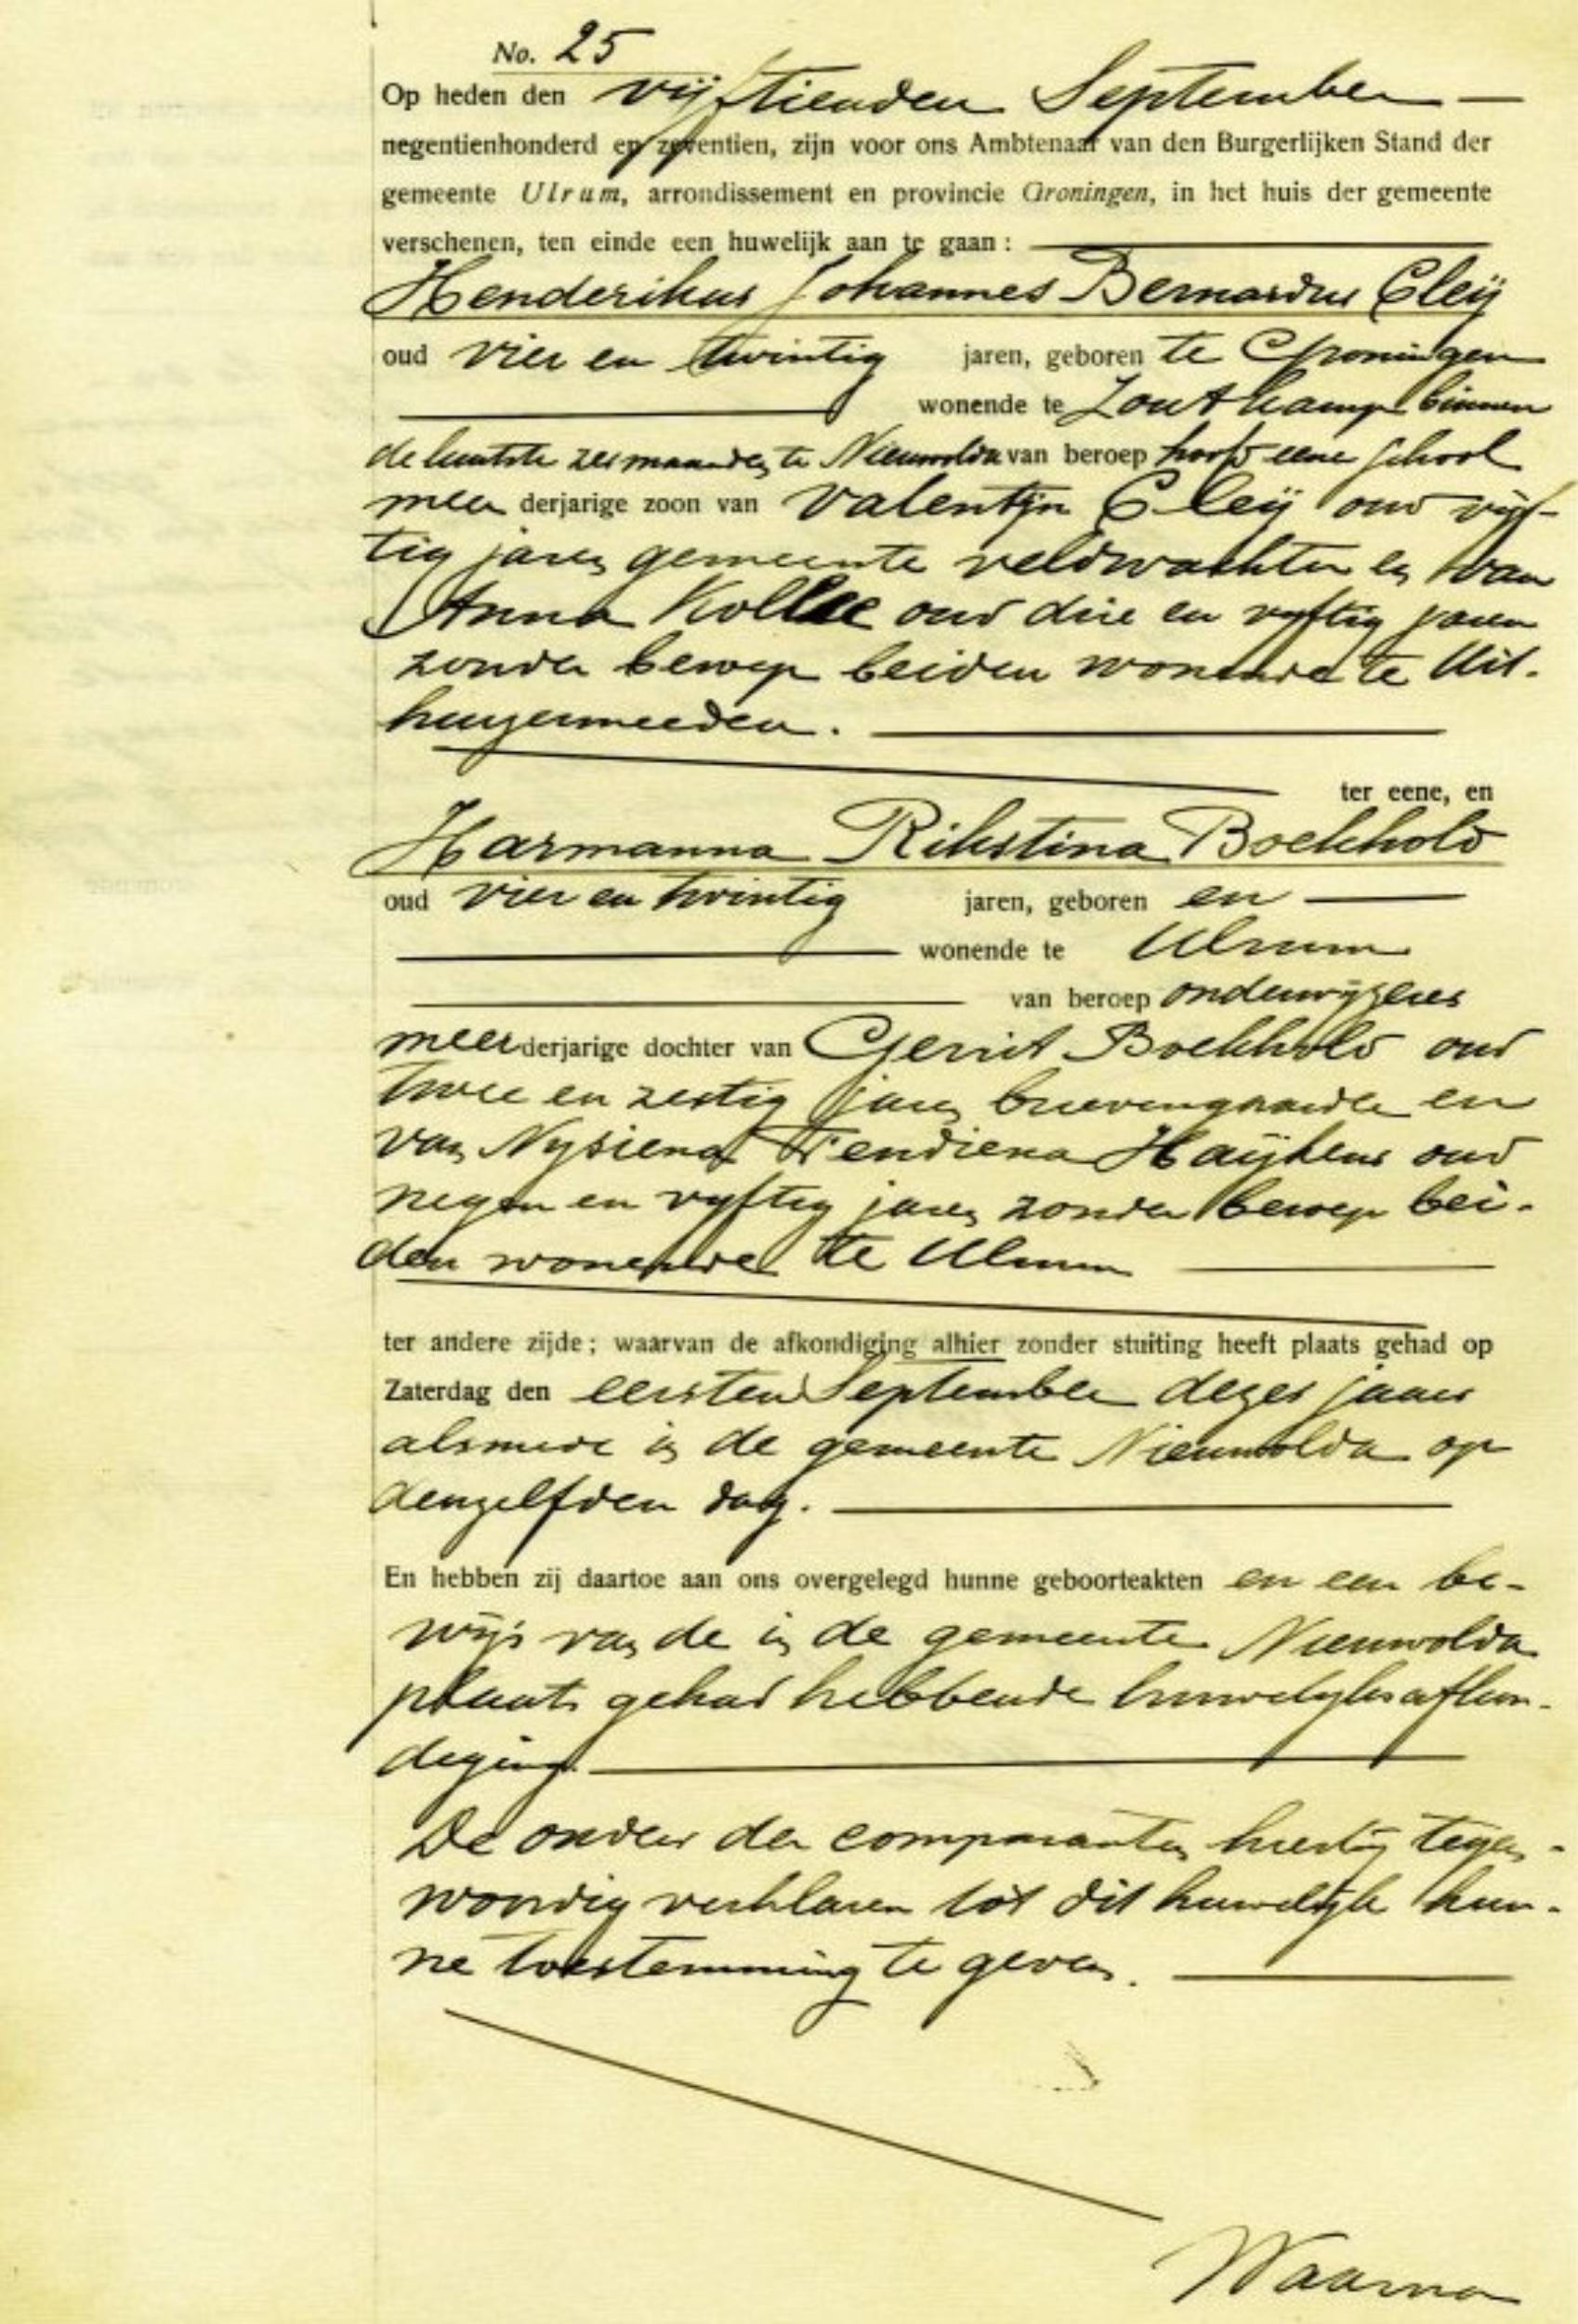 No. 25
Op heden den vijftienden September
negentienhonderd en zeventien, zijn voor ons Ambtenaar van den Burgerlijken Stand der
gemeente Ulrum, arrondissement en provincie Groningen, in het huis der gemeente
verschenen, ten einde een huwelijk aan te gaan :
Henderikus Johannes Bernardus Cleÿ
oud vier en twintig jaren, geboren te Groningen
wonende te Zoutkamp binnen
de laatste zes maanden te Nieuwolda van beroep hoofd eener school
meerderjarige zoon van Valentijn Cleÿ oud vijf-
tig jaren gemeente veldwachter en van
Anna Kolle oud drie en vijftig jaren
zonder beroep beiden wonende te Uit-
huizermeeden.
ter eene, en
Harmanna Rikstina Boekhold
oud vier en twintig jaren, geboren en
wonende te Ulrum
van beroep onderwijzeres
meerderjarige dochter van Gerrit Boekhold oud
twee en zestig jaren brievengaarder en
van Nysiena Fendiena Haijkens oud
negen en vijftig jaren zonder beroep bei-
den wonende te Ulrum
ter andere zijde; waarvan de afkondiging alhier zonder stuiting heeft plaats gehad op
Zaterdag den eersten September dezes jaars
alsmede in de gemeente Nieuwolda op
denzelfden dag.
En hebben zij daartoe aan ons overgelegd hunne geboorteakten en een be-
wijs van de in de gemeente Nieuwolda
plaats gehad hebbende huwelijksafkon-
diging.
De ouders der comparanten hierbij tegen-
woordig verklaren tot dit huwelijk hun-
ne toestemming te geven.
Waarna